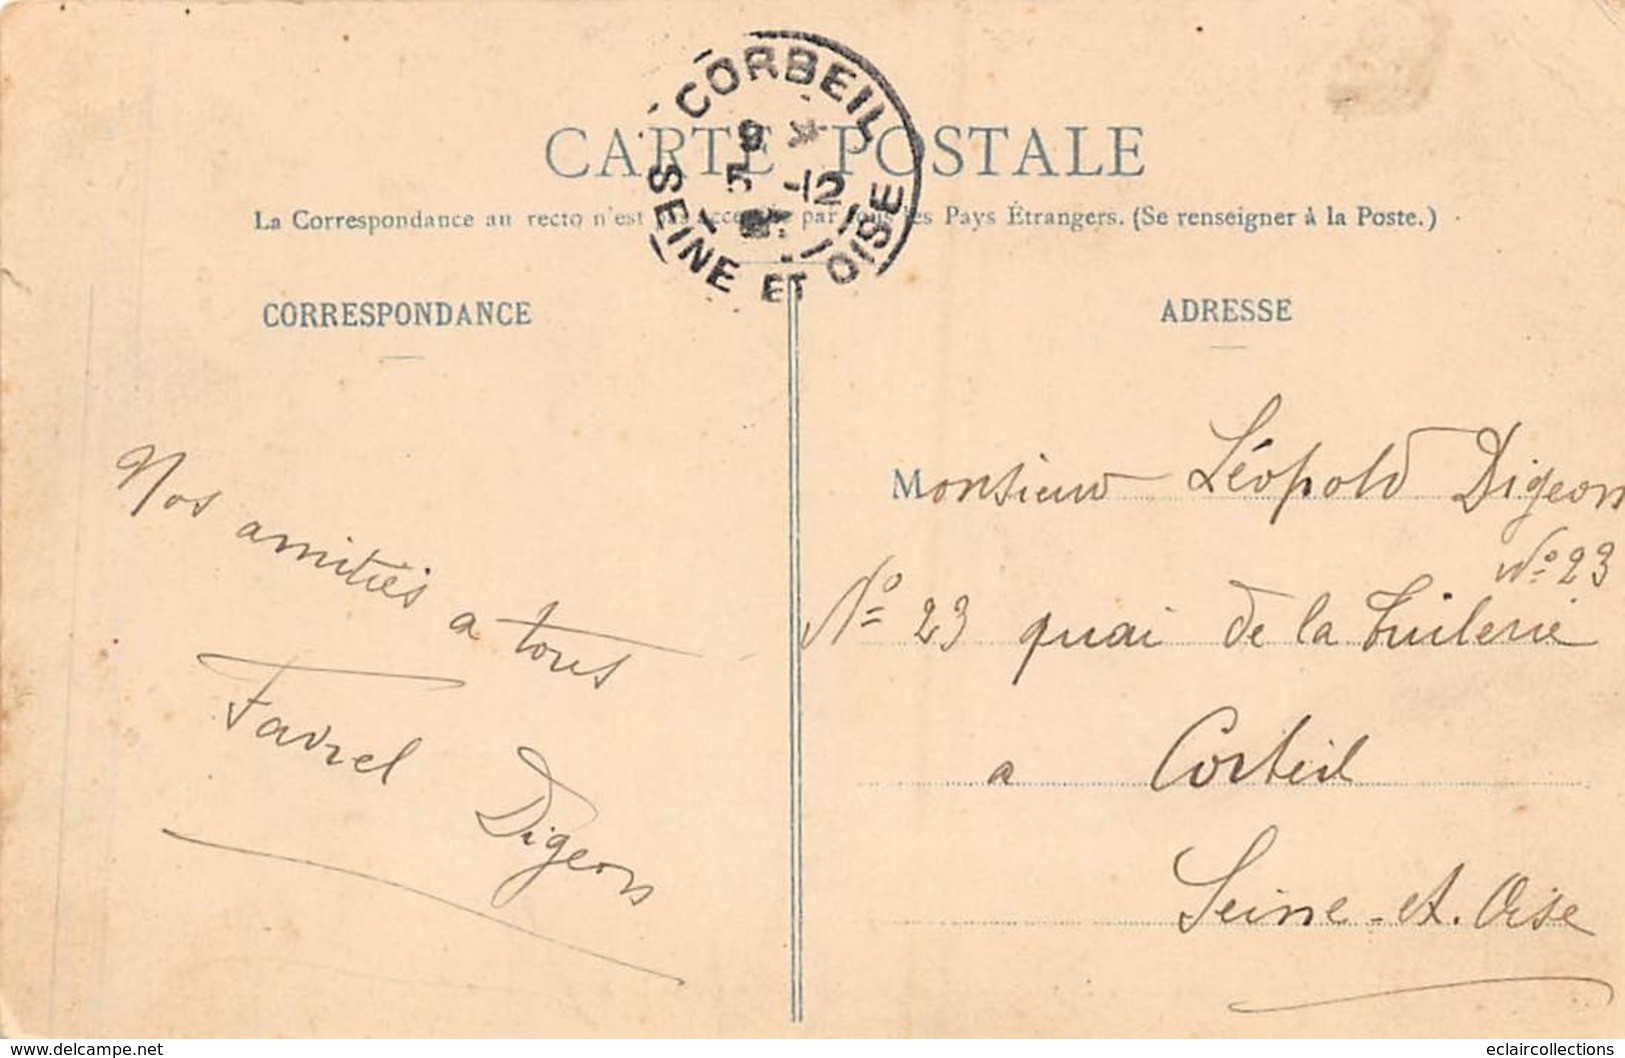 CARTE POSTALE
La Correspondance au recto n'est pas acceptée par tous les Pays Étrangers. (Se renseigner à la Poste.)
CORBEIL
5 -12
SEINE ET OISE
CORRESPONDANCE
Nos amitiés
a tous
Favrel Digeon
ADRESSE
Monsieur Léopold Digeon
N° 23
N° 23 quai de la tuilerie
a Corbeil
Seine-et-Oise
www.delcampe.net
eclaircollections